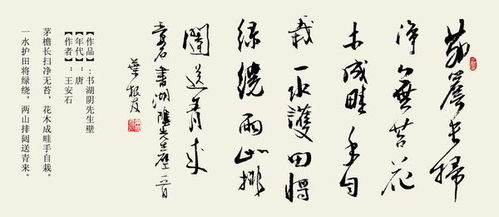 茅簷長掃
淨無苔花
木成畦手自
栽一水護田將
綠繞兩山排
闥送青來
書湖陰先生壁一首
【作品】：书湖阴先生壁
【年代】：唐
【作者】：王安石
茅檐长扫净无苔，花木成畦手自栽。
一水护田将绿绕，两山排闼送青来。